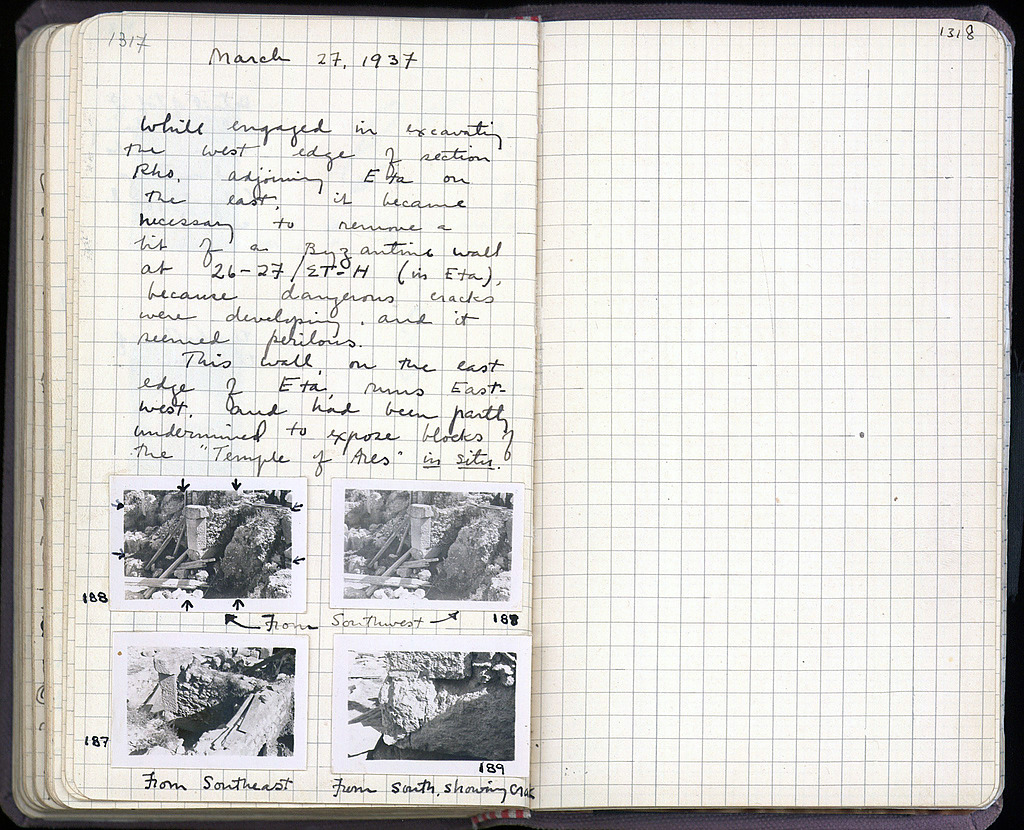 1317
March 27, 1937
While engaged in excavating
the west edge of section
Rho, adjoining Eta on
the east, it became
necessary to remove a
bit of a Byzantine wall
at 26-27/ΣΤ-Η (in Eta),
because dangerous cracks
were developing, and it
seemed perilous.
This wall, on the east
edge of Eta, runs East-
west, and had been partly
undermined to expose blocks of
the "Temple of Ares" in situ.
188
From Southwest
188
187
189
From Southeast
From South, showing crac
1318